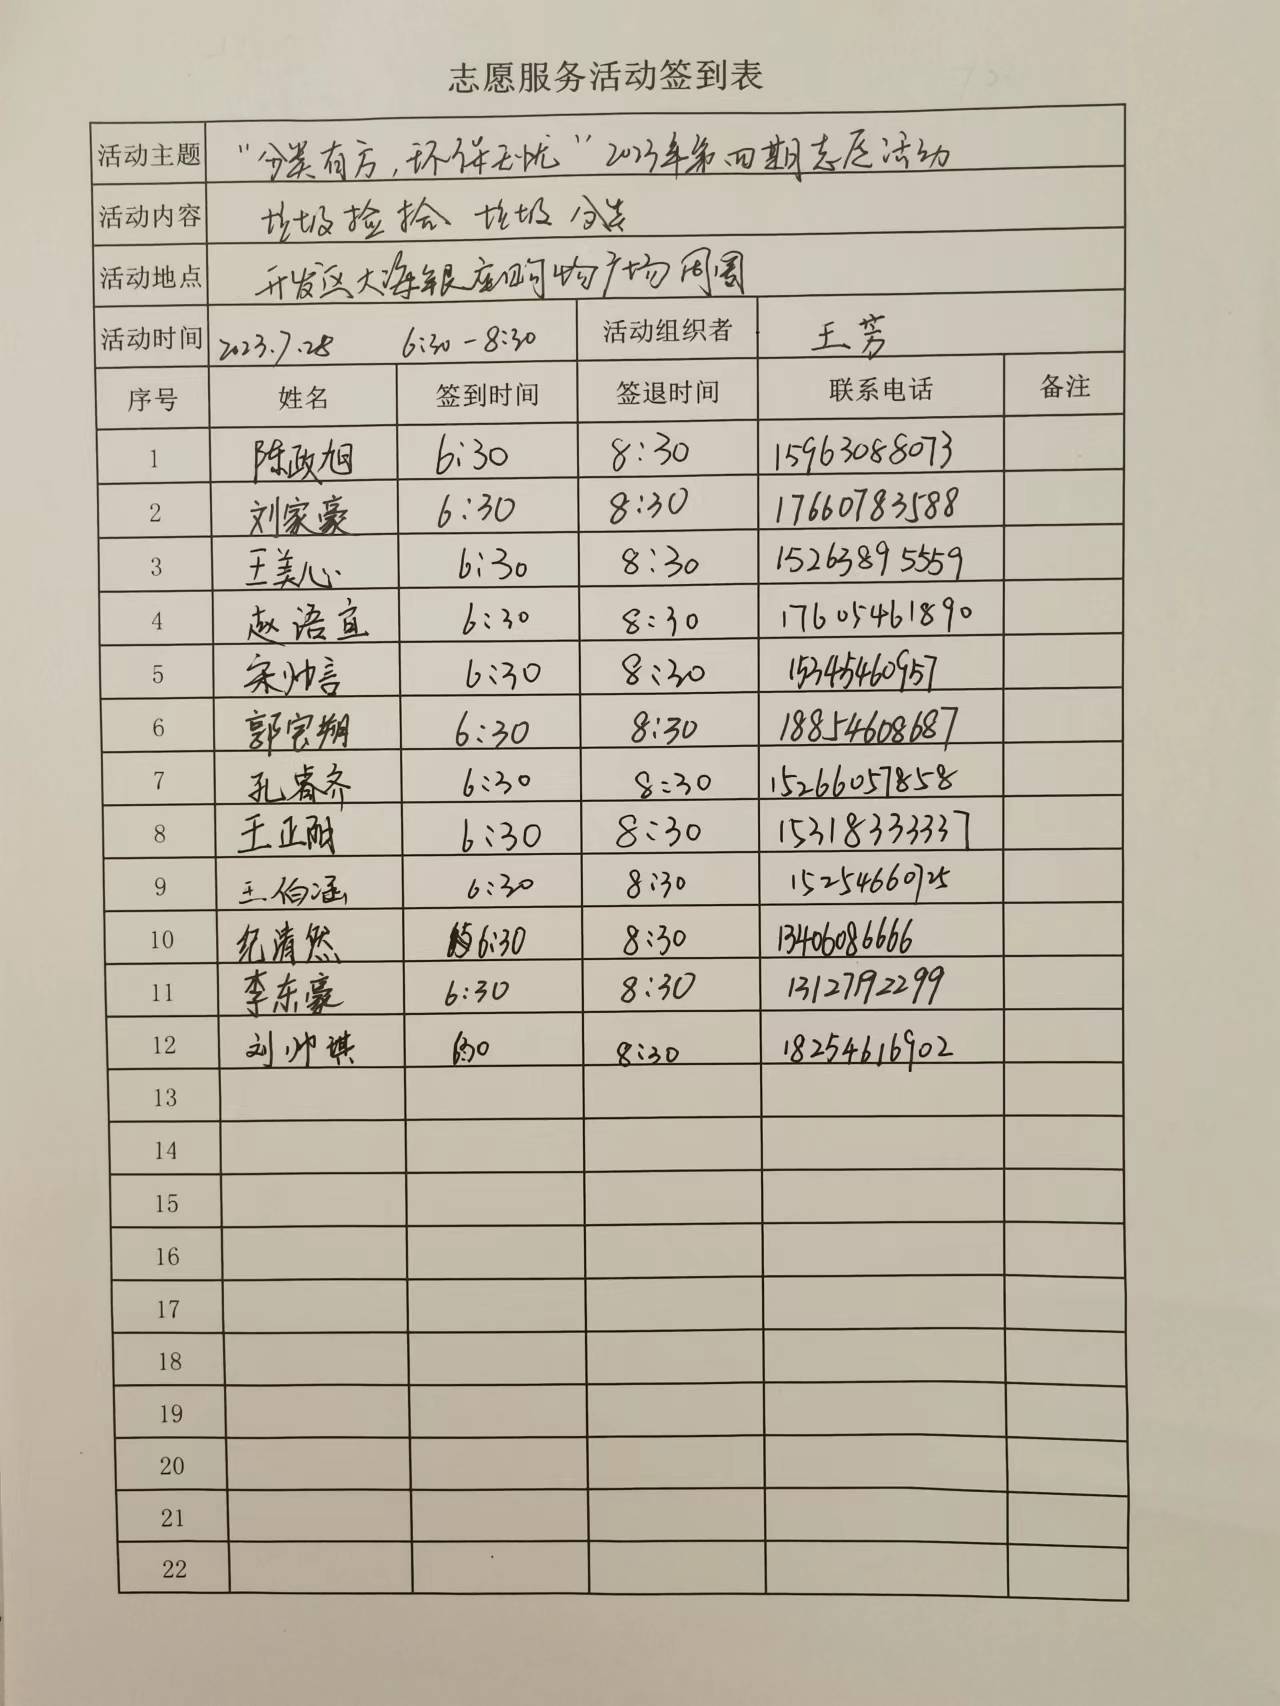 志愿服务活动签到表
活动主题 “分类有方，环保无忧”2023年第四期志愿活动
活动内容 垃圾捡拾 垃圾分类
活动地点 开发区大海银座购物广场周围
活动时间 2023.7.28 6:30-8:30 活动组织者 王芳
序号 姓名 签到时间 签退时间 联系电话 备注
1 陈政旭 6:30 8:30 15963088073
2 刘家豪 6:30 8:30 17660783588
3 王美心 6:30 8:30 15263895559
4 赵语宣 6:30 8:30 17605461890
5 宋帅言 6:30 8:30 15345460957
6 郭宸朔 6:30 8:30 18854608687
7 孔睿齐 6:30 8:30 15266057858
8 王正 6:30 8:30 15318333337
9 王伯涵 6:30 8:30 15254660725
10 纪清然 6:30 8:30 13406086666
11 李东豪 6:30 8:30 13127192299
12 刘帅琪 6:30 8:30 18254616902
13
14
15
16
17
18
19
20
21
22